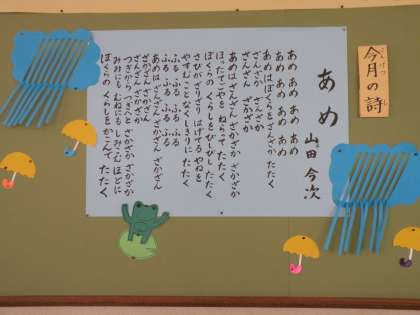 今月の詩
こんげつ
あめ
山田今次
あめ あめ あめ あめ
あめ あめ あめ あめ
あめはぼくらを ざんざか たたく
ざんざか ざんざか
ざんざん ざかざか
あめは ざんざん ざかざか ざかざか
ほったてごやを ねらって たたく
ぼくらの くらしを びしびし たたく
さびが ざりざり はげてる やねを
やすむことなく しきりに たたく
ふる ふる ふる ふる
ふる ふる ふる ふる
あめは ざんざん ざかざん ざかざん
ざかざん ざかざん
ざんざん ざかざか
つぎから つぎへと ざかざか ざかざか
みみにも むねにも しみこむ ほどに
ぼくらの くらしを かこんで たたく